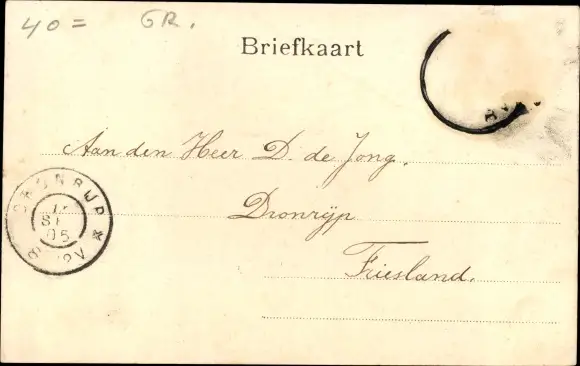 40= GR.
Briefkaart
Aan den Heer D. de Jong.
Dronrijp
Friesland.
DRONRIJP
05